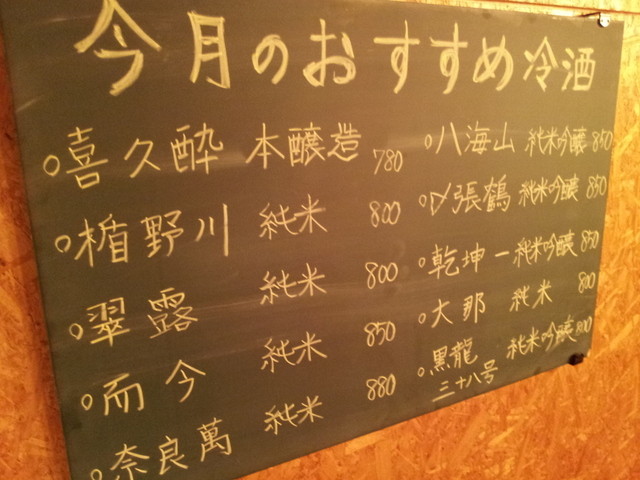 今月のおすすめ冷酒
○喜久酔 本醸造 780
○楯野川 純米 800
○翠露 純米 800
○而今 純米 850
○奈良萬 純米 880
○八海山 純米吟醸 850
○〆張鶴 純米吟醸 850
○乾坤一 純米吟醸 850
○大那 純米 800
○黒龍 純米吟醸 800
三十八号